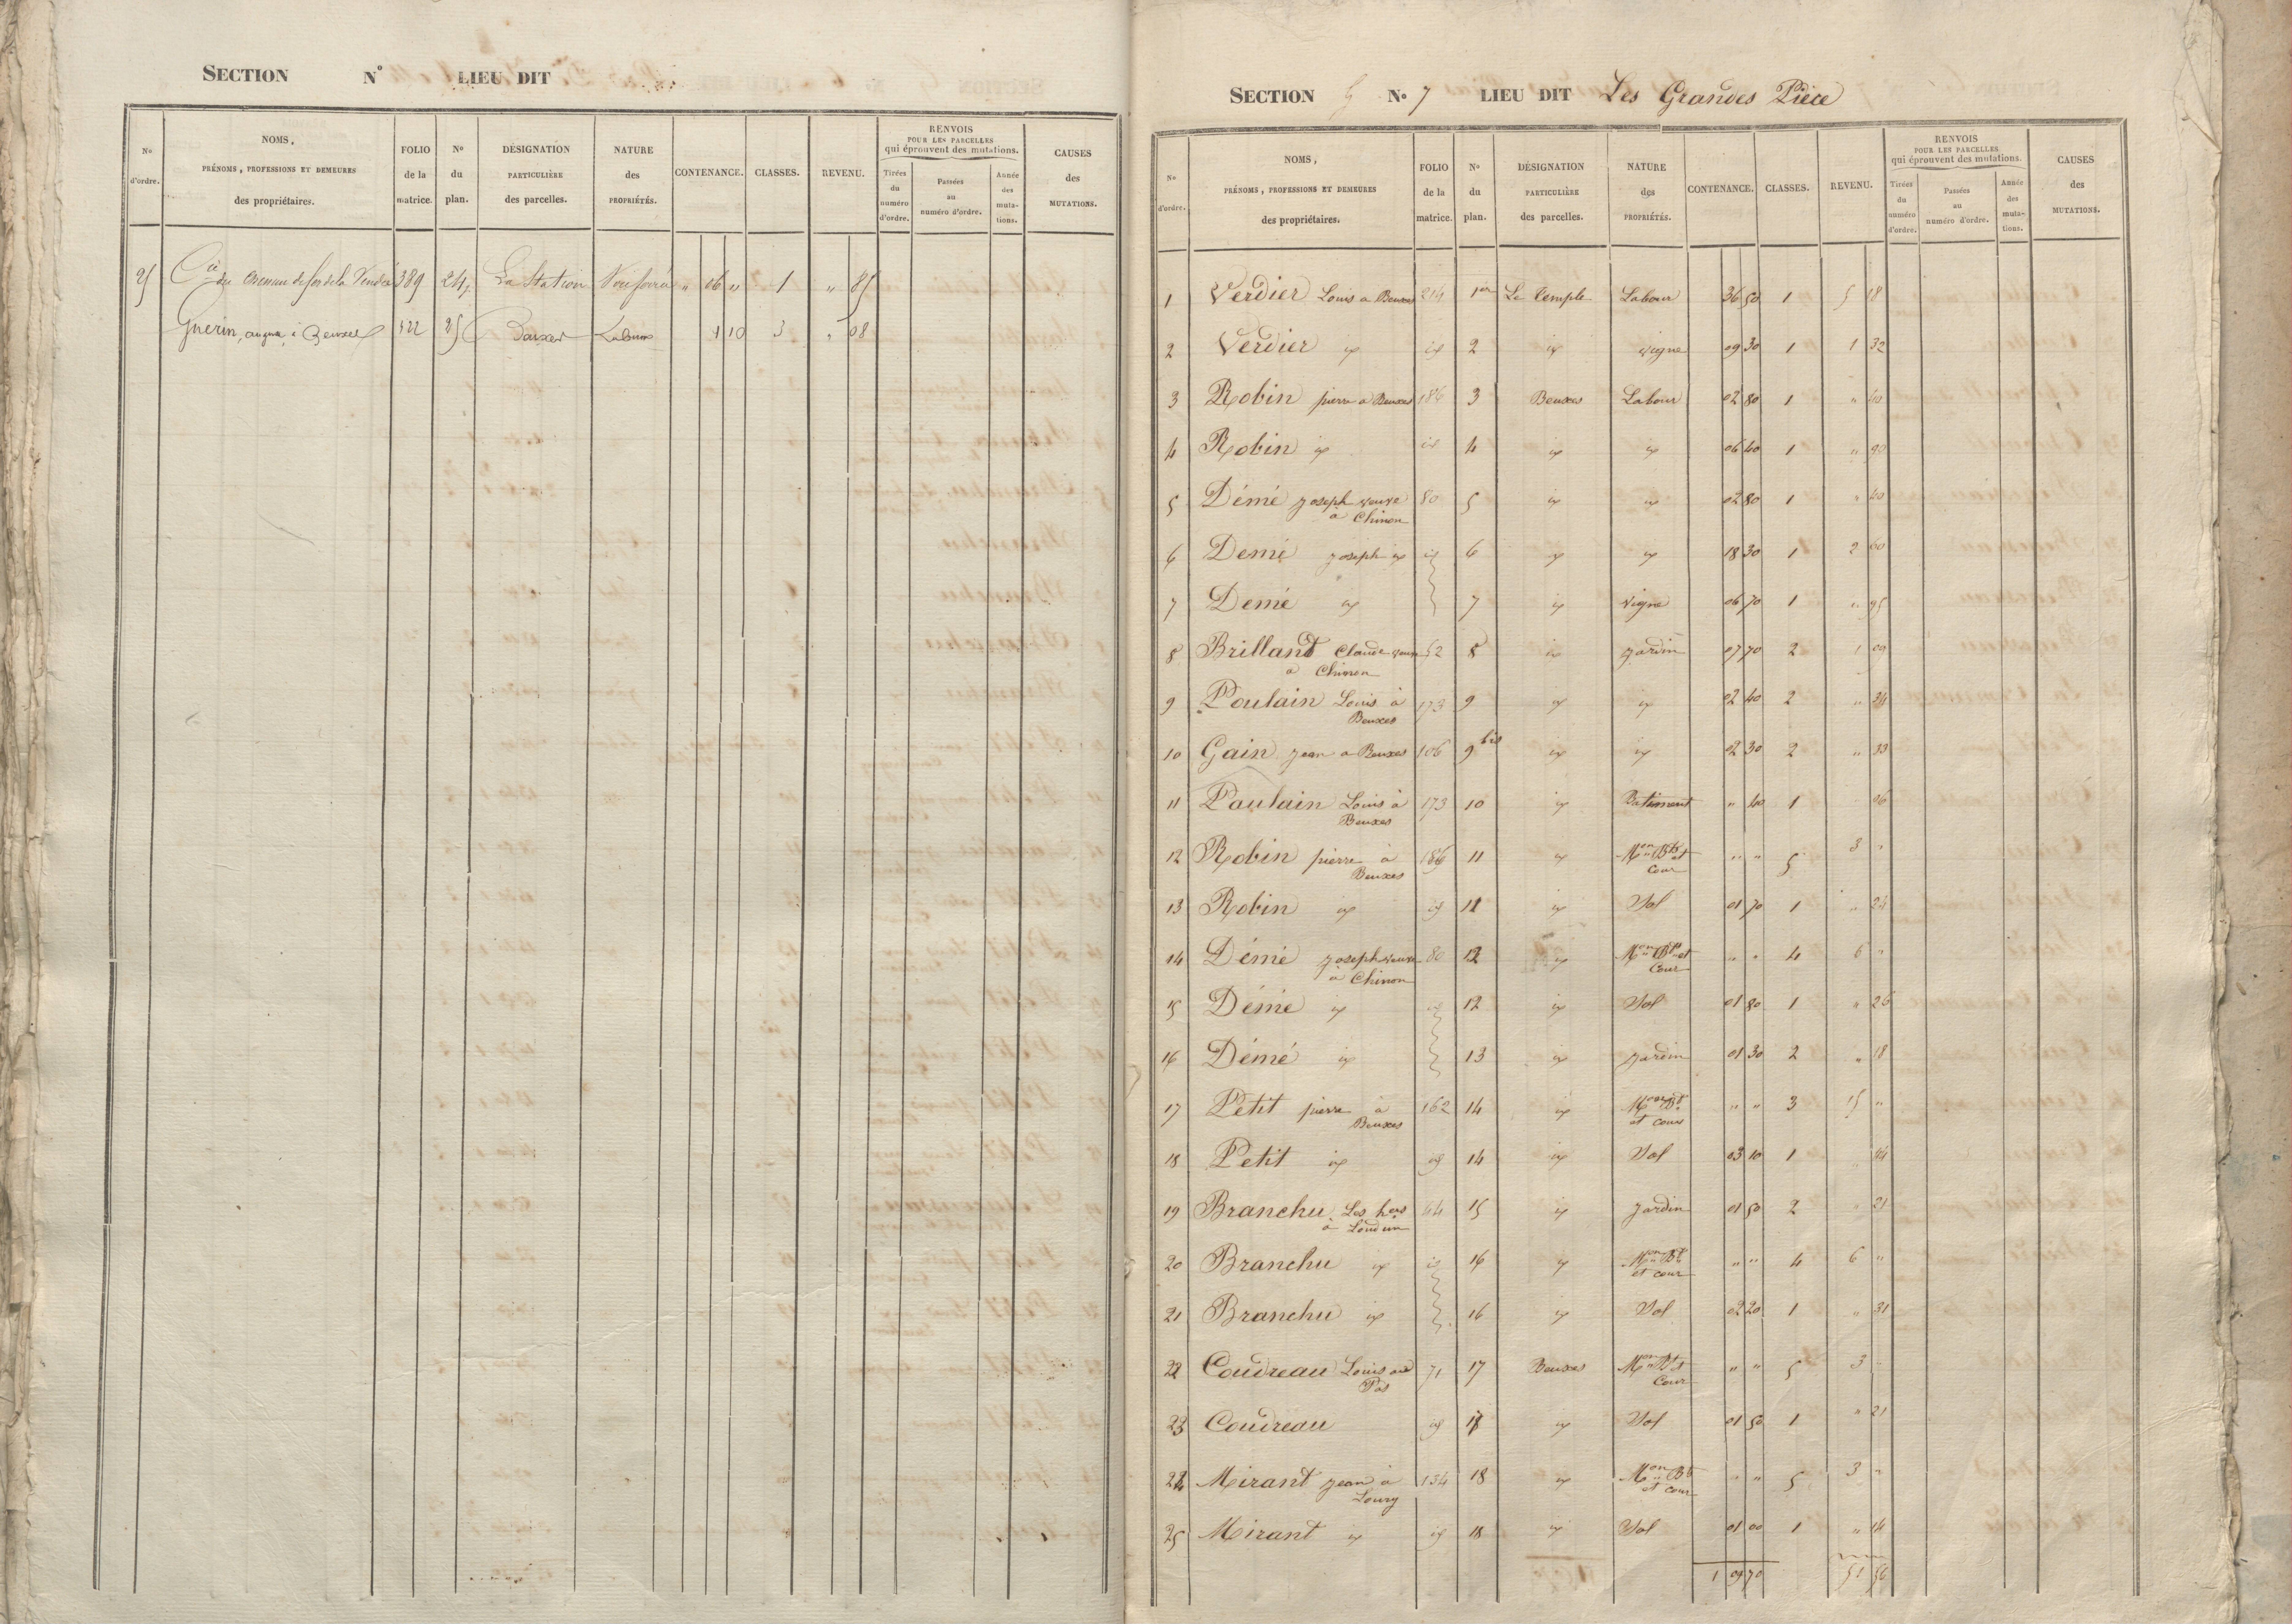 SECTION N° LIEU DIT
No d'ordre.
NOMS, PRÉNOMS, PROFESSIONS ET DEMEURES des propriétaires.
FOLIO de la matrice.
No du plan.
DÉSIGNATION PARTICULIÈRE des parcelles.
NATURE des PROPRIÉTÉS.
CONTENANCE.
CLASSES.
REVENU.
RENVOIS POUR LES PARCELLES qui éprouvent des mutations.
Tirées du numéro d'ordre.
Passées au numéro d'ordre.
Année des mutations.
CAUSES des MUTATIONS.
25 Cie du Chemin de fer de la Vendée 389 24 La Station " 06 " 1 " 85
Guerin, à Beuxes 422 25 Labour 1 10 3 " 08
SECTION G No 7 LIEU DIT Les Grandes Pièce
No d'ordre.
NOMS, PRÉNOMS, PROFESSIONS ET DEMEURES des propriétaires.
FOLIO de la matrice.
No du plan.
DÉSIGNATION PARTICULIÈRE des parcelles.
NATURE des PROPRIÉTÉS.
CONTENANCE.
CLASSES.
REVENU.
RENVOIS POUR LES PARCELLES qui éprouvent des mutations.
Tirées du numéro d'ordre.
Passées au numéro d'ordre.
Année des mutations.
CAUSES des MUTATIONS.
1 Verdier Louis a Beuxes 214 1er Le Temple Labour 36 50 1 5 18
2 Verdier id id 2 id vigne 09 30 1 1 32
3 Robin pierre a Beuxes 186 3 Beuxes Labour 02 80 1 " 40
4 Robin id id 4 id id 06 40 1 " 90
5 Démé joseph veuve 80 5 id id 02 80 1 " 40
à Chinon
6 Demé joseph id id 6 id id 18 30 1 2 60
7 Demé id 7 id vigne 06 70 1 " 95
8 Brillant Claude veuve 52 8 id jardin 07 70 2 1 09
a Chinon
9 Poulain Louis à 173 9 id id 02 40 2 " 34
Beuxes
10 Gain jean a Beuxes 106 9 bis id id 02 30 2 " 33
11 Poulain Louis à 173 10 id Batiment " 40 1 06
Beuxes
12 Robin pierre à 186 11 id Mon Bts et " " 5 3 "
Beuxes cour
13 Robin id id 11 id Sol 01 70 1 " 24
14 Démé joseph veuve 80 12 id Mon Bts et " " 4 6 "
à Chinon Cour
15 Démé id id 12 id Sol 01 80 1 " 26
16 Démé id 13 id jardin 01 30 2 " 18
17 Petit pierre à 162 14 id Mon Bt " " 3 15 "
Beuxes et cour
18 Petit id id 14 id Sol 03 10 1 " 44
19 Branchu Les hers 44 15 id jardin 01 50 2 " 21
à Loudun
20 Branchu id id 16 id Mon Bt " " 4 6 "
et cour
21 Branchu id 16 id Sol 02 20 1 " 31
22 Coudreau Louis au 71 17 Beuxes Mon Bt et " " 5 3 "
Pas Cour
23 Coudreau id 17 id Sol 01 50 1 " 21
24 Mirant jean à 134 18 id Mon Bt " " 5 3 "
et cour
25 Mirant id id 18 id Sol 01 00 1 " 14
1 09 70 51 56